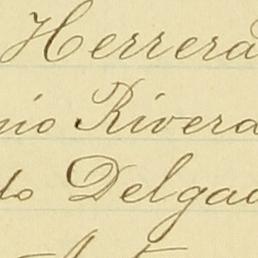 Herrera
nio Rivera
do Delgad